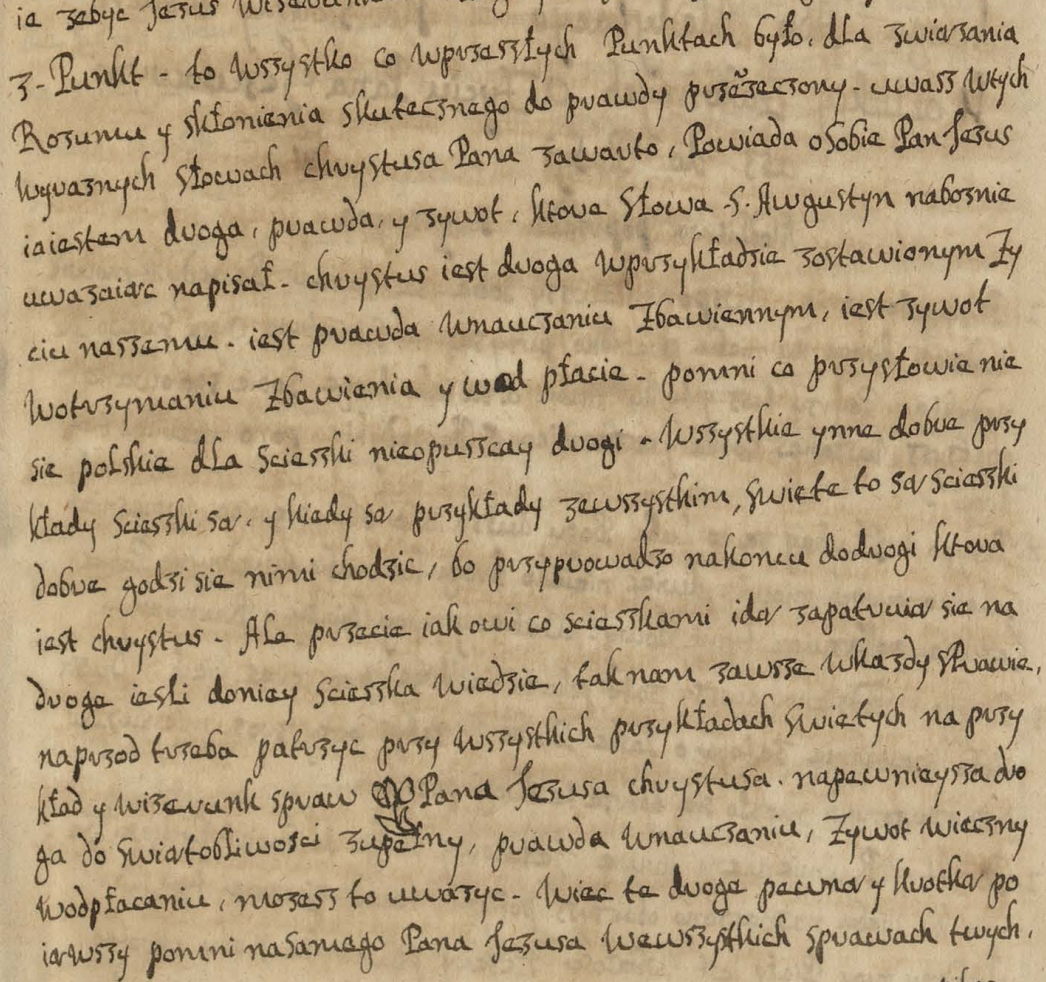 ie zebyc Jezus
3 - Punkt - to wszystko co wprzeszłych Punktach było, dla zwiazania
Rozumu y skłonienia skutecznego do prawdy przerzeczony - uwasz wtych
wyraznych słowach chrystusa Pana zawarto, Powiada o sobie Pan Jezus
ia iestem droga, prawda, y zywot, ktore słowa S. Awgustyn naboznie
uwazaiac napisał - chrystus iest droga wprzykładzie zostawionym Zy
ciu naszemu - iest prawda wnauczaniu Zbawiennym, iest zywot
wotrzymaniu Zbawienia y wod płacie - pomni co przysłowie nie
sie polskie dla sciesski nieopusscay drogi - Wszystkie ynne dobre przy
kłady sciesski sa, y kiedy sa przykłady zewszystkim, swiete to sa sciesski
dobre godzi sie nimi chodzic, bo przyprowadzo nakoncu dodrogi ktora
iest chrystus - Ale przecie iak owi co sciesskami ida zapatruia sie na
droge iesli doniey sciesska wiedzie, tak nam zawsze wkazdy sprawie,
naprzod trzeba patrzyc przy wszystkich przykładach swietych na przy
kład y wizerunk spraw Pana Jezusa chrystusa. napewnieysza dro
ga do swiatobliwosci zupełny, prawda wnauczaniu, Zywot wieczny
wodpłacaniu, mozess to uwazyc - Wiec te droge pewna y krotka po
iawszy pomni nasamego Pana Jezusa wewszystkich sprawach twych.